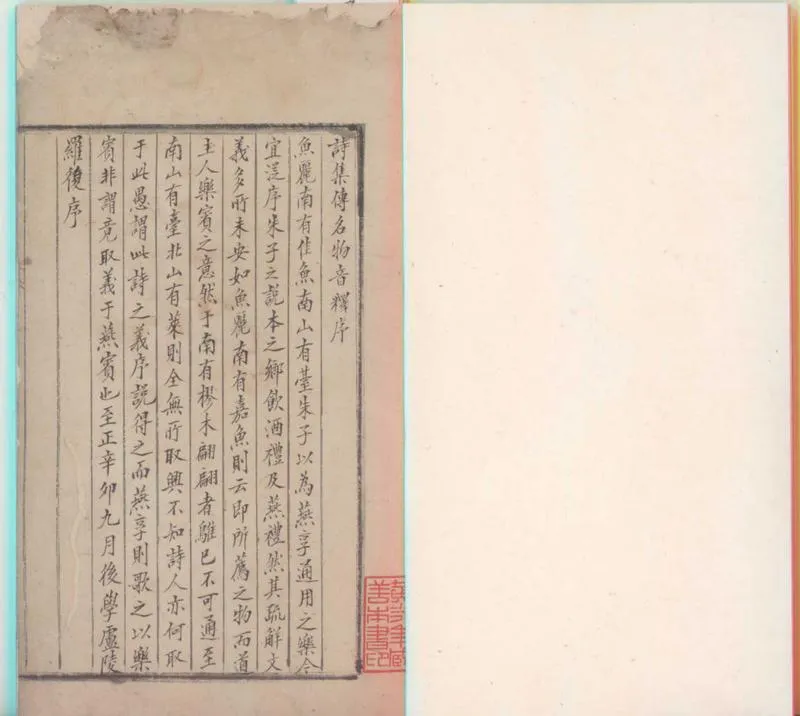 詩集傳名物音釋序
魚麗南有佳魚南山有臺朱子以為燕享通用之樂今
宜從序朱子之說本之鄉飲酒禮及燕禮然其疏解文
義多所未安如魚麗南有嘉魚則云即所薦之物而道
主人樂賓之意然于南有樛木翩翩者鵻已不可通至
南山有臺北山有萊則全無所取興不知詩人亦何取
于此愚謂此詩之義序說得之而燕享則歌之以樂
賓非謂竟取義于燕賓也至正辛卯九月後學廬陵
羅復序
善本書印